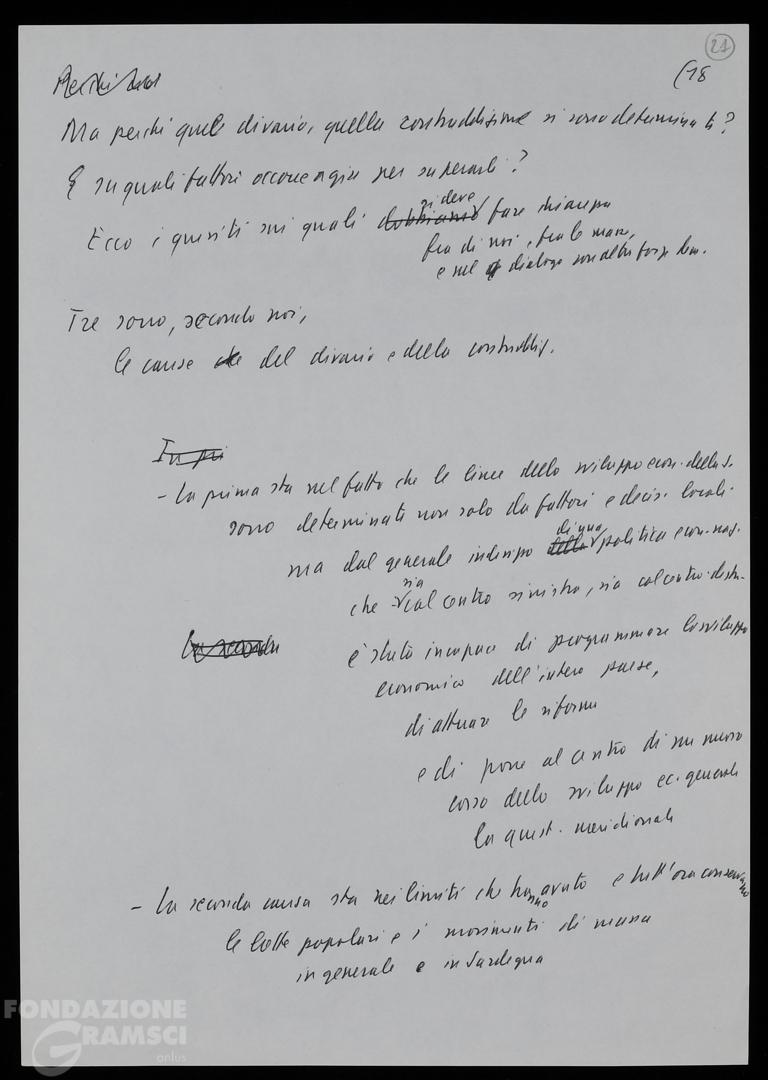 21
(18
Ma perché quel divario, quella contraddizione si sono determinati?
E su quali fattori occorre agire per superarli?
Ecco i quesiti sui quali dobbiamo si deve fare chiarezza
fra di noi, fra le masse,
e nel dialogo con altre forze dem.
Tre sono, secondo noi,
le cause del divario e della contraddiz.
In pri
- La prima sta nel fatto che le linee dello sviluppo econ. della S.
sono determinate non solo da fattori e decis. locali
ma dal generale indirizzo della di una politica econ. naz.
che sia col centro sinistra, sia col centro-destra
La seconda
è stata incapace di programmare lo sviluppo
economico dell'intero paese,
di attuare le riforme
e di porre al centro di un nuovo
corso dello sviluppo ec. generale
la quest. meridionale
- La seconda causa sta nei limiti che hanno avuto e tutt'ora conservano
le lotte popolari e i movimenti di massa
in generale e in Sardegna
FONDAZIONE
GRAMSCI
onlus